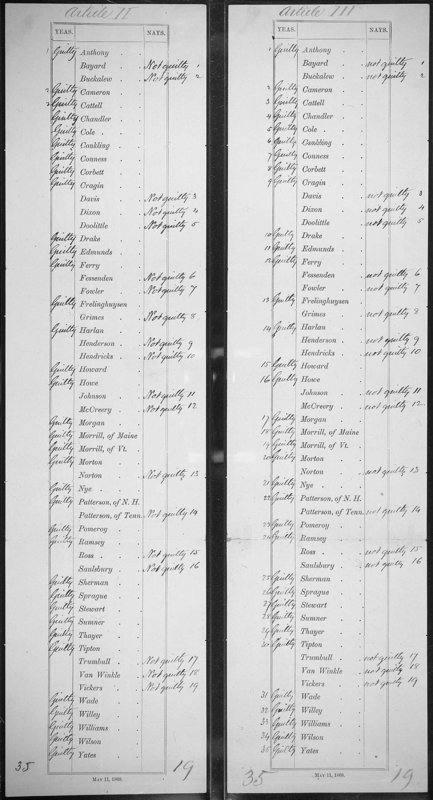 Article II
YEAS. NAYS.
1 Guilty Anthony
Bayard Not guilty 1
Buckalew Not guilty 2
2 Guilty Cameron
3 Guilty Cattell
Guilty Chandler
Guilty Cole
Guilty Conkling
Guilty Conness
Guilty Corbett
Guilty Cragin
Davis Not guilty 3
Dixon Not guilty 4
Doolittle Not guilty 5
Guilty Drake
Guilty Edmunds
Guilty Ferry
Fessenden Not guilty 6
Fowler Not guilty 7
Guilty Frelinghuysen
Grimes Not guilty 8
Guilty Harlan
Henderson Not guilty 9
Hendricks Not guilty 10
Guilty Howard
Guilty Howe
Johnson Not guilty 11
McCreery Not guilty 12
Guilty Morgan
Guilty Morrill, of Maine
Guilty Morrill, of Vt.
Guilty Morton
Norton Not guilty 13
Guilty Nye
Guilty Patterson, of N. H.
Patterson, of Tenn. Not guilty 14
Guilty Pomeroy
Guilty Ramsey
Ross Not guilty 15
Saulsbury Not guilty 16
Guilty Sherman
Guilty Sprague
Guilty Stewart
Guilty Sumner
Guilty Thayer
Guilty Tipton
Trumbull Not guilty 17
Van Winkle Not guilty 18
Vickers Not guilty 19
Guilty Wade
Guilty Willey
Guilty Williams
Guilty Wilson
Guilty Yates
35 19
May 11, 1868.
Article III
YEAS. NAYS.
1 Guilty Anthony
Bayard not guilty 1
Buckalew not guilty 2
2 Guilty Cameron
3 Guilty Cattell
4 Guilty Chandler
5 Guilty Cole
6 Guilty Conkling
7 Guilty Conness
8 Guilty Corbett
9 Guilty Cragin
Davis not guilty 3
Dixon not guilty 4
Doolittle not guilty 5
10 Guilty Drake
11 Guilty Edmunds
12 Guilty Ferry
Fessenden not guilty 6
Fowler not guilty 7
13 Guilty Frelinghuysen
Grimes not guilty 8
14 Guilty Harlan
Henderson not guilty 9
Hendricks not guilty 10
15 Guilty Howard
16 Guilty Howe
Johnson not guilty 11
McCreery not guilty 12
17 Guilty Morgan
18 Guilty Morrill, of Maine
19 Guilty Morrill, of Vt.
20 Guilty Morton
Norton not guilty 13
21 Guilty Nye
22 Guilty Patterson, of N. H.
Patterson, of Tenn. not guilty 14
23 Guilty Pomeroy
24 Guilty Ramsey
Ross not guilty 15
Saulsbury not guilty 16
25 Guilty Sherman
26 Guilty Sprague
27 Guilty Stewart
28 Guilty Sumner
29 Guilty Thayer
30 Guilty Tipton
Trumbull not guilty 17
Van Winkle not guilty 18
Vickers not guilty 19
31 Guilty Wade
32 Guilty Willey
33 Guilty Williams
34 Guilty Wilson
35 Guilty Yates
35 19
May 11, 1868.